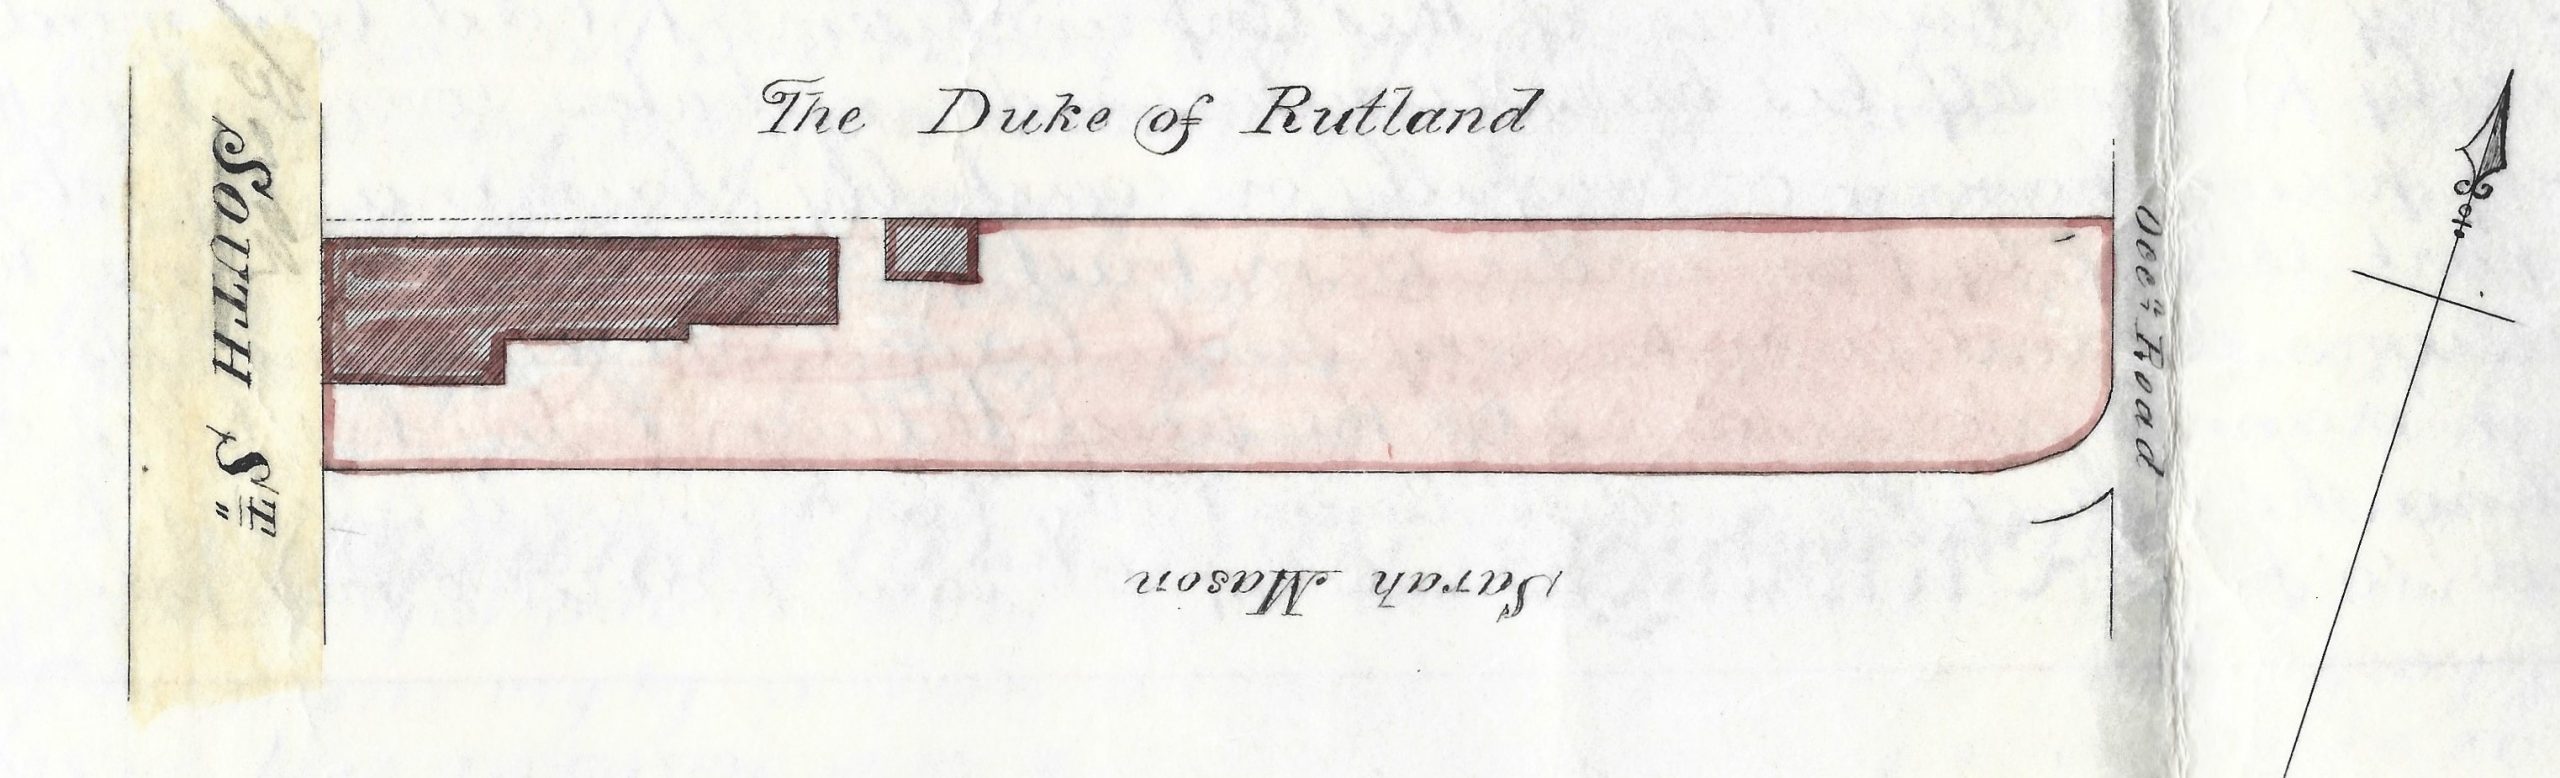 The Duke of Rutland
SOUTH St"
Occn Road
Sarah Mason